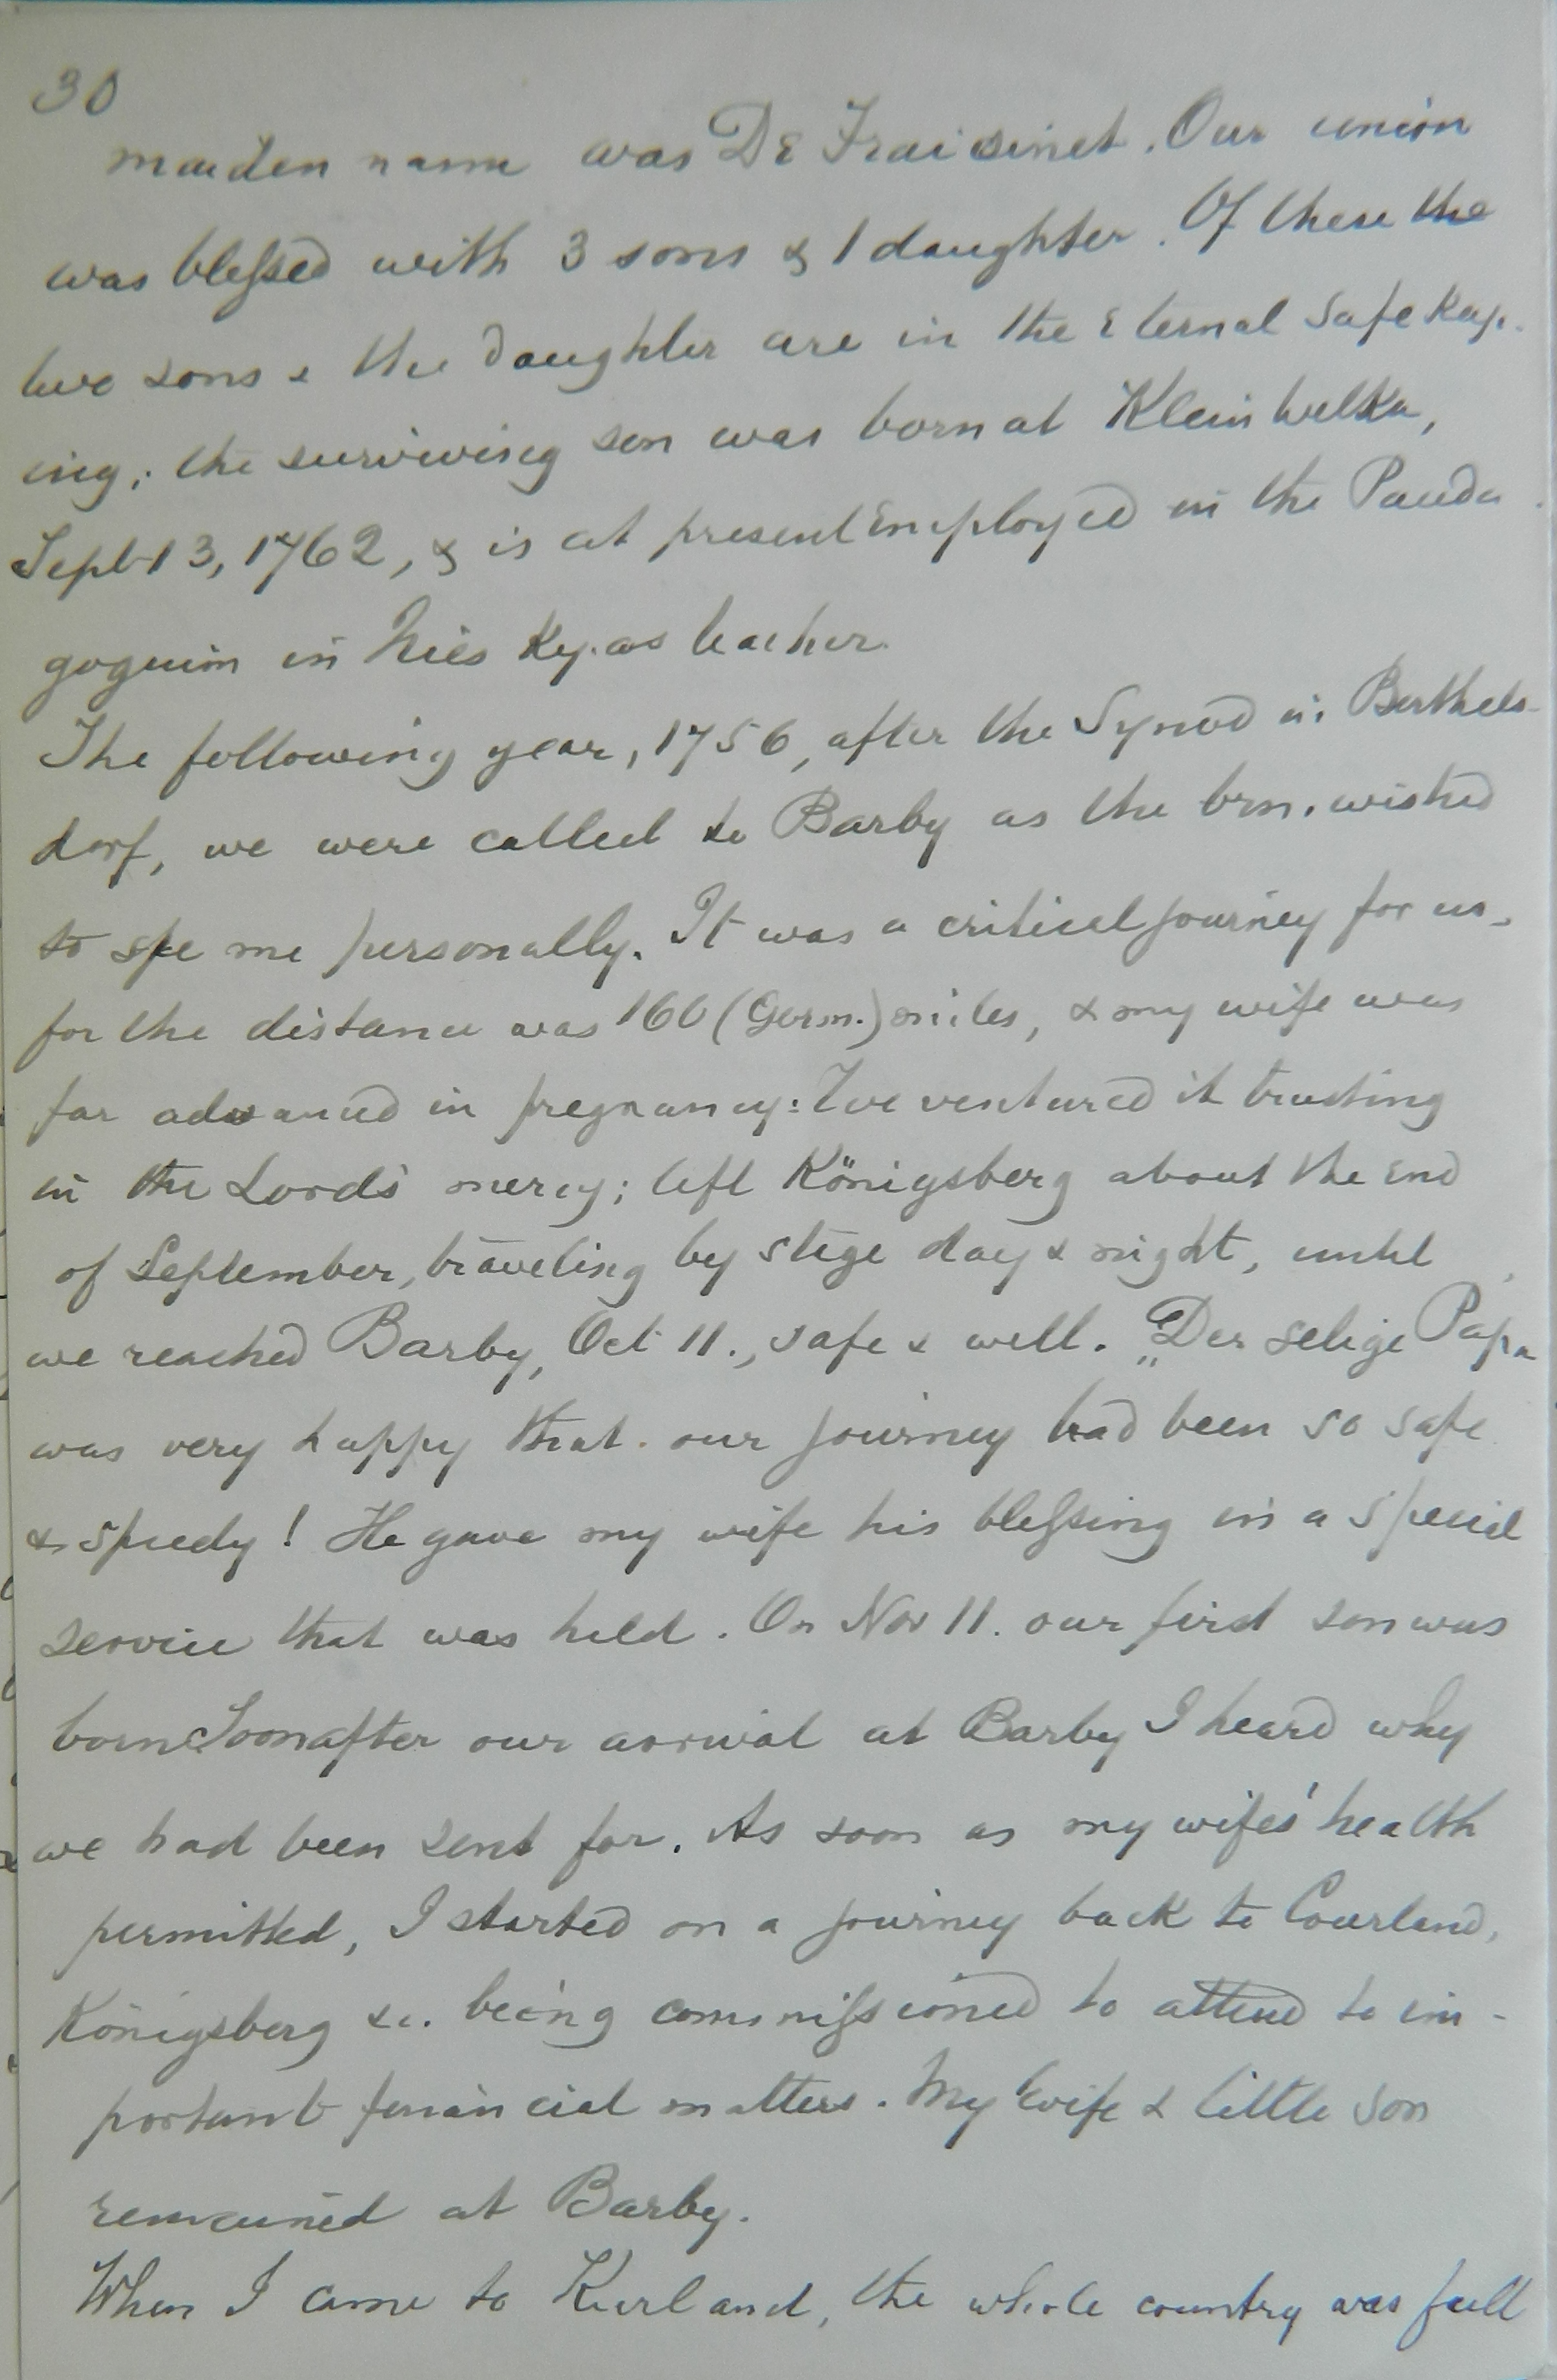 30
maiden name was De Fraisinet. Our union
was blessed with 3 sons & 1 daughter. Of these the
two sons & the daughter are in the Eternal Safe Keep-
ing; the surviving son was born at Klein Welka,
Sept 13, 1762, & is at present Employed in the Paeda
gogium in Nies Ky. as teacher.
The following year, 1756, after the Synod in Berthels-
dorf, we were called to Barby as the brn. wished
to see me personally. It was a critical journey for us,
for the distance was 160 (Germ.) miles, & my wife was
far advanced in pregnancy: We ventured it trusting
in the Lord's mercy; left Königsberg about the End
of September, traveling by stage day & night, until
we reached Barby, Oct 11., safe & well. „Der selige Papa
was very happy that our journey had been so safe
& speedy! He gave my wife his blessing in a special
service that was held. On Nov 11. our first son was
born Soon after our arrival at Barby I heard why
we had been sent for. As soon as my wifes' health
permitted, I started on a journey back to Courland,
Königsberg &c. being commissioned to attend to im-
portant financial matters. My wife & little son
remained at Barby.
When I came to Kurland, the whole country was full